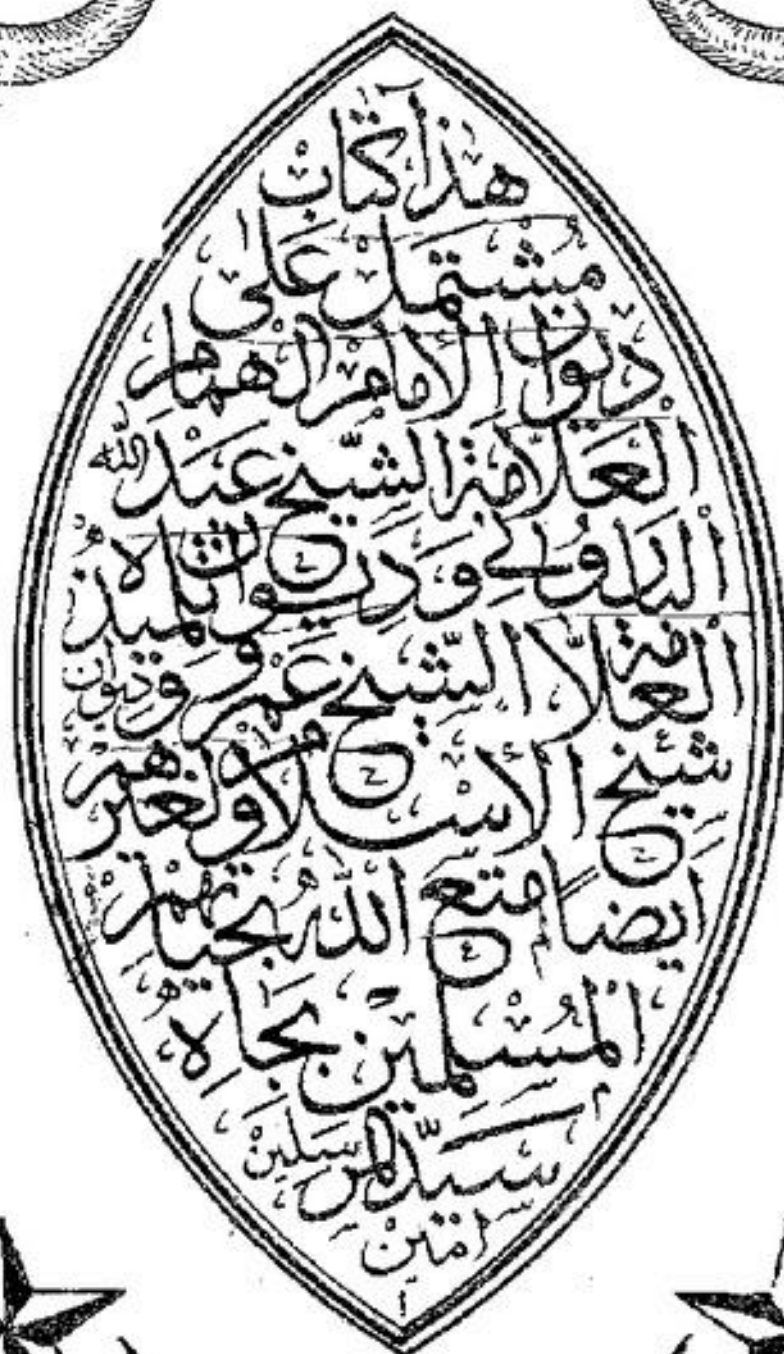 هذا كتاب
مشتمل على
ديوان الإمام الهمام
العلامة الشيخ عبد الله
البدلولي وديوان تلميذه
العلامة الشيخ عمر وديوان
شيخ الإسلام ولغيرهم
أيضا متع الله بحياتهم
المسلمين بجاه
سيد المرسلين
امين